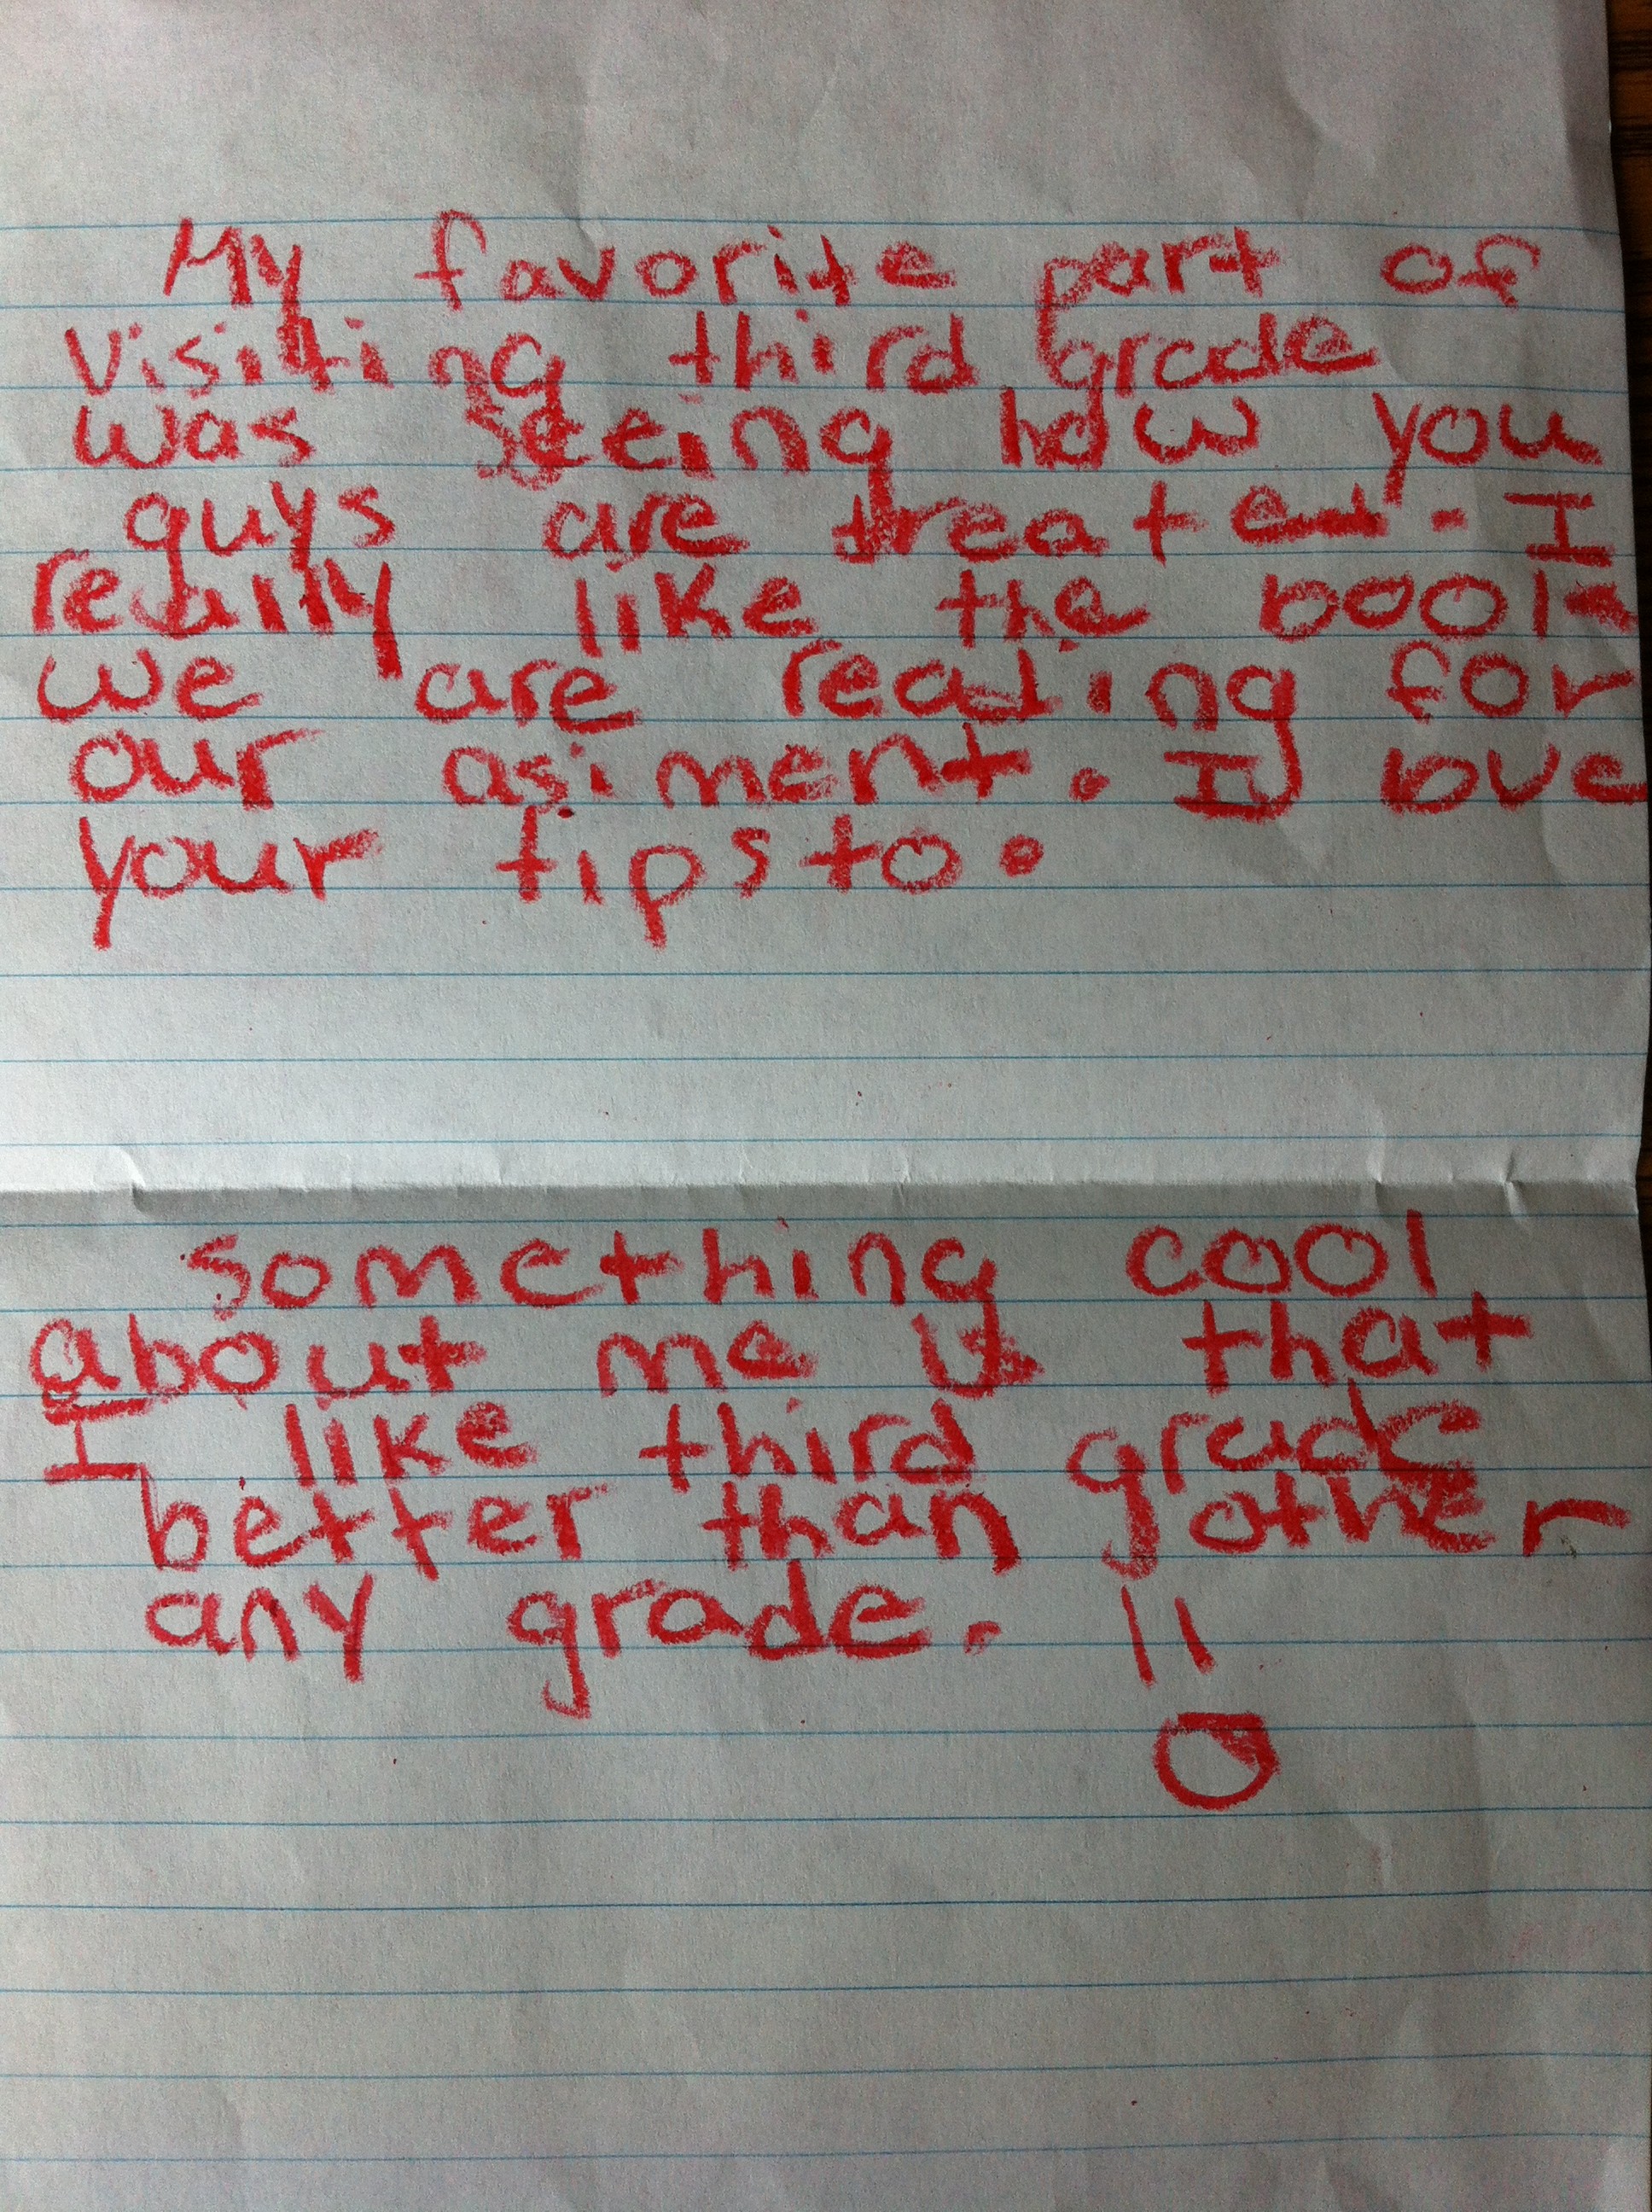 My favorite part of
visiting third grade
was seeing how you
guys are treated. I
really like the book
we are reading for
our asiment. I love
your tips to.
something cool
about me is that
I like third grade
better than other
any grade. !!